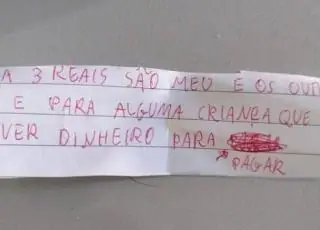 A 3 REAIS SÃO MEU E OS OUT
E PARA ALGUMA CRIANÇA QUE
VER DINHEIRO PARA
PAGAR